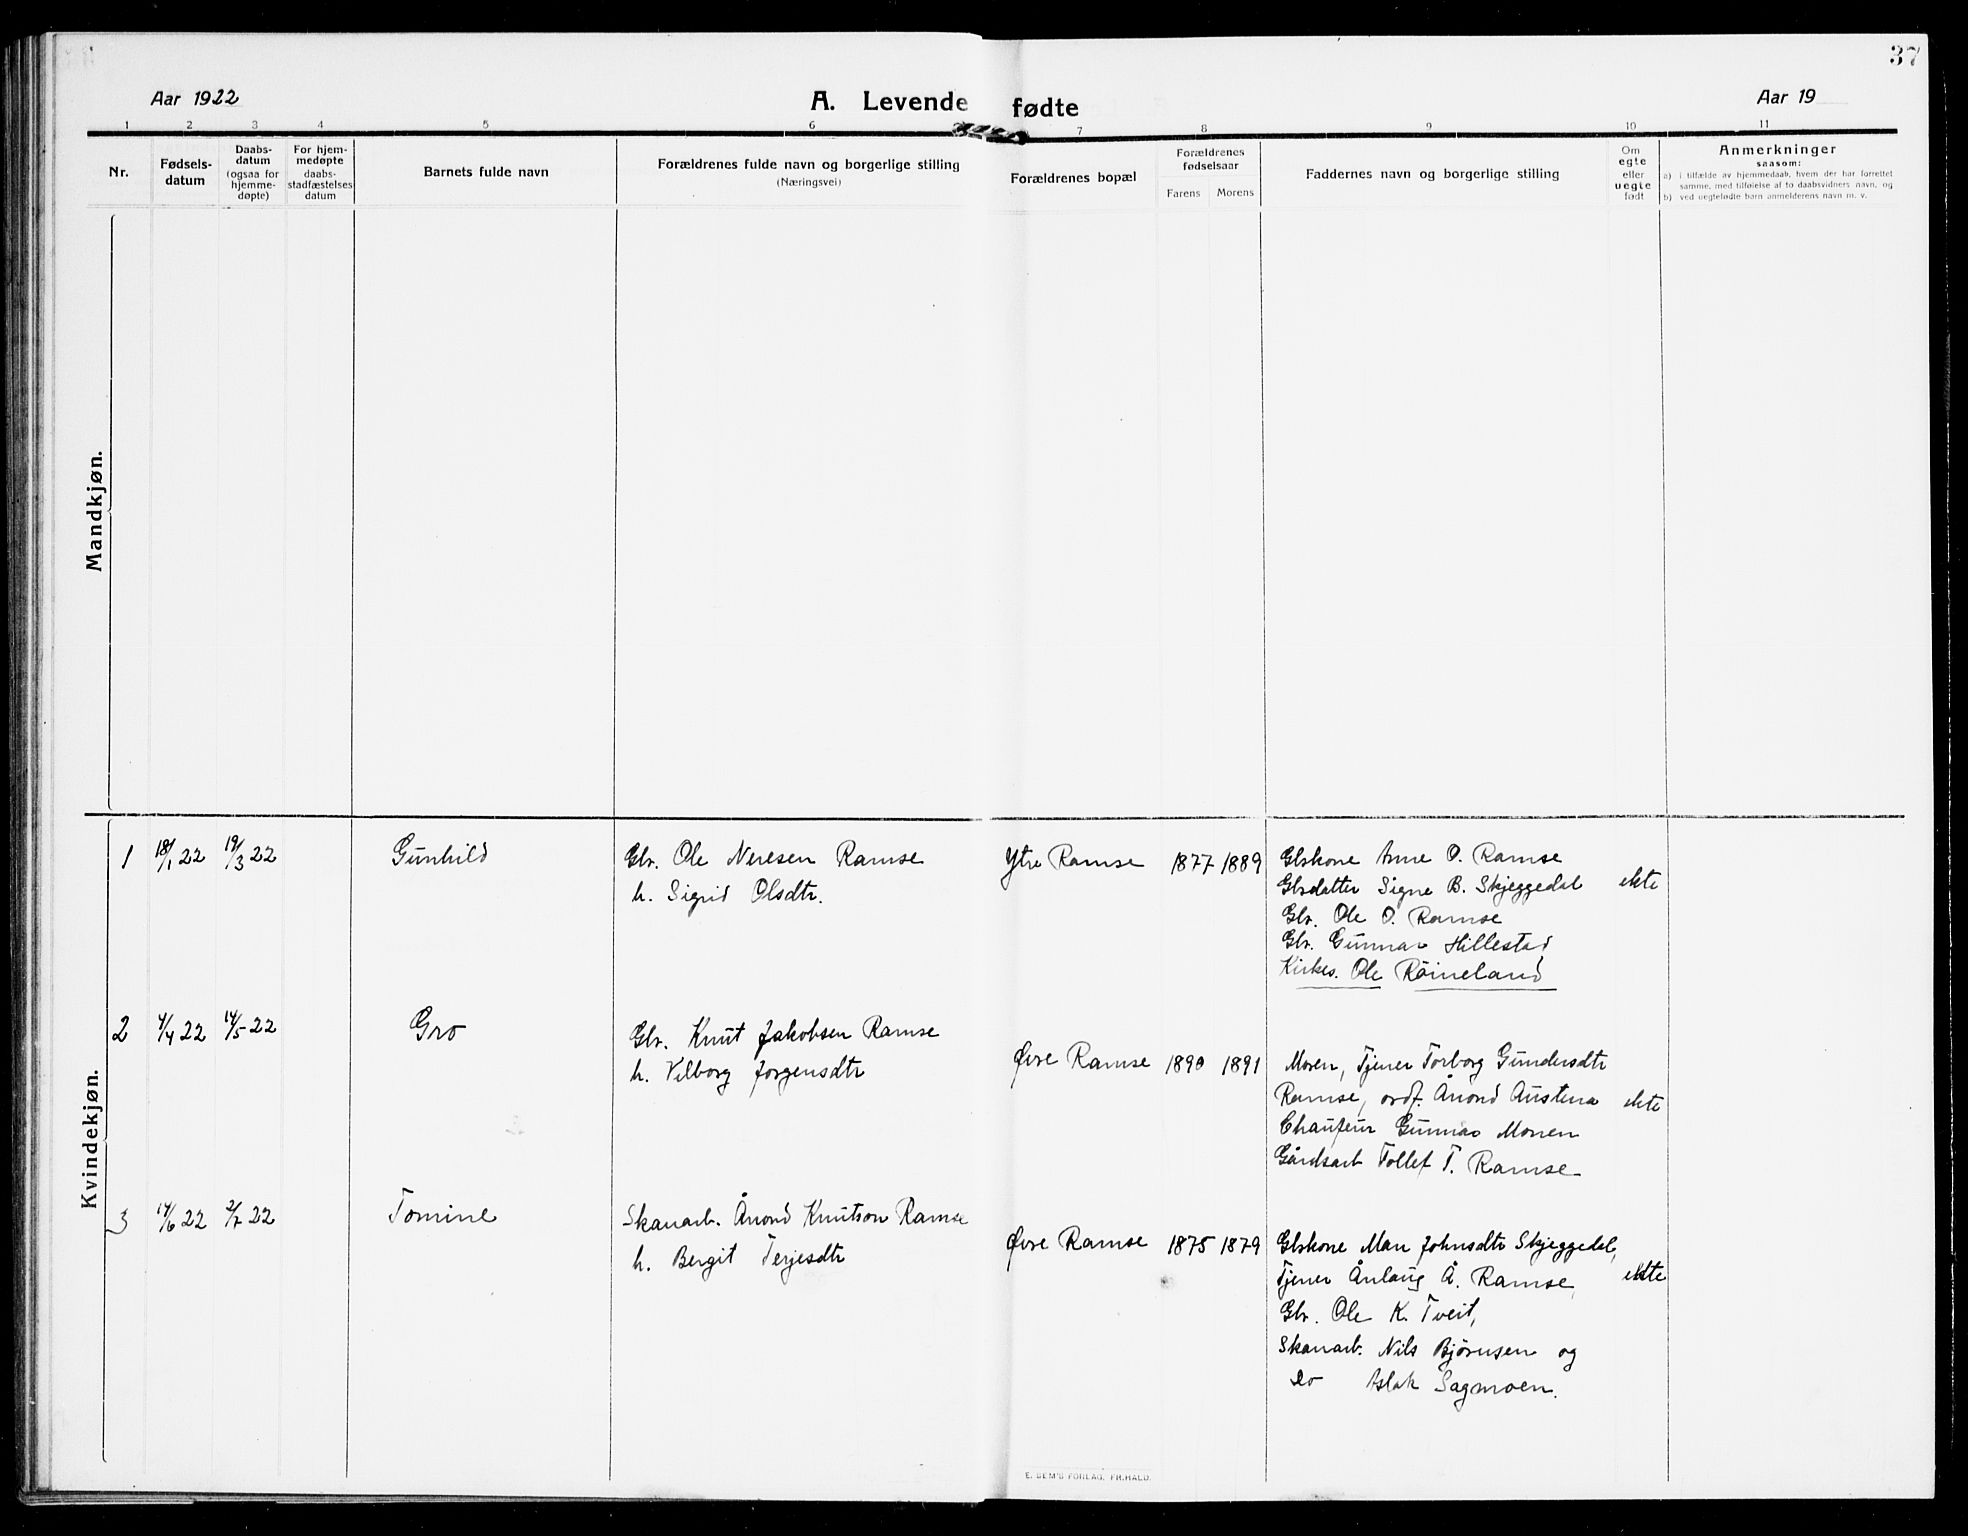 37
Aar 1922
A. Levende fødte
Aar 19
1 2 3 4 5 6 7 8 9 10 11
Nr.
Fødsels-
datum
Daabs-
datum
(ogsaa for
hjemme-
døpte)
For hjem-
medøpte
daabs-
stadfæstelses
datum
Barnets fulde navn
Forældrenes fulde navn og borgerlige stilling
(Næringsvei)
Forældrenes bopæl
Forældrenes
fødselsaar
Farens Morens
Faddernes navn og borgerlige stilling
Om
egte
eller
uegte
født
Anmerkninger
saasom:
a) i tilfælde av hjemmedaab, hvem der har forrettet
samme, med tilføielse af to daabsvidners navn, og
b) ved uegtefødte børn anmelderens navn m. v.
Mandkjøn.
Kvindekjøn.
1 18/1 22 19/3 22 Gunhild
Gbr. Ole Neresen Ramse
h. Sigrid Olsdtr.
Ytre Ramse 1877 1889
Gbskone Anne O. Ramse
Gbrdatter Signe B. Skjeggedal ekte
Gbr. Ole O. Ramse
Gbr. Gunnar Hillestad
Kirkes. Ole Røineland
2 4/4 22 14/5 22 Gro
Gbr. Knut Jakobsen Ramse
h. Vilborg Jorgensdtr
Øvre Ramse 1890 1891
Moren, Tjener Torborg Gundersdtr
Ramse, ordf. Ånond Austenå ekte
Chaufeur Gunnar Monen
Gårdsarb Tollef T. Ramse
3 14/6 22 2/7 22 Tomine
Skauarb. Ånond Knutson Ramse
h. Bergit Terjesdtr
Øvre Ramse 1875 1879
Gbskone Mari Johnsdtr Skjeggedal,
Tjener Ånlaug Å. Ramse, ekte
Gbr. Ole K. Tveit,
Skauarb. Nils Bjørnsen og
do Aslak Sagmoen.
E. SEM'S FORLAG, FR.HALD.